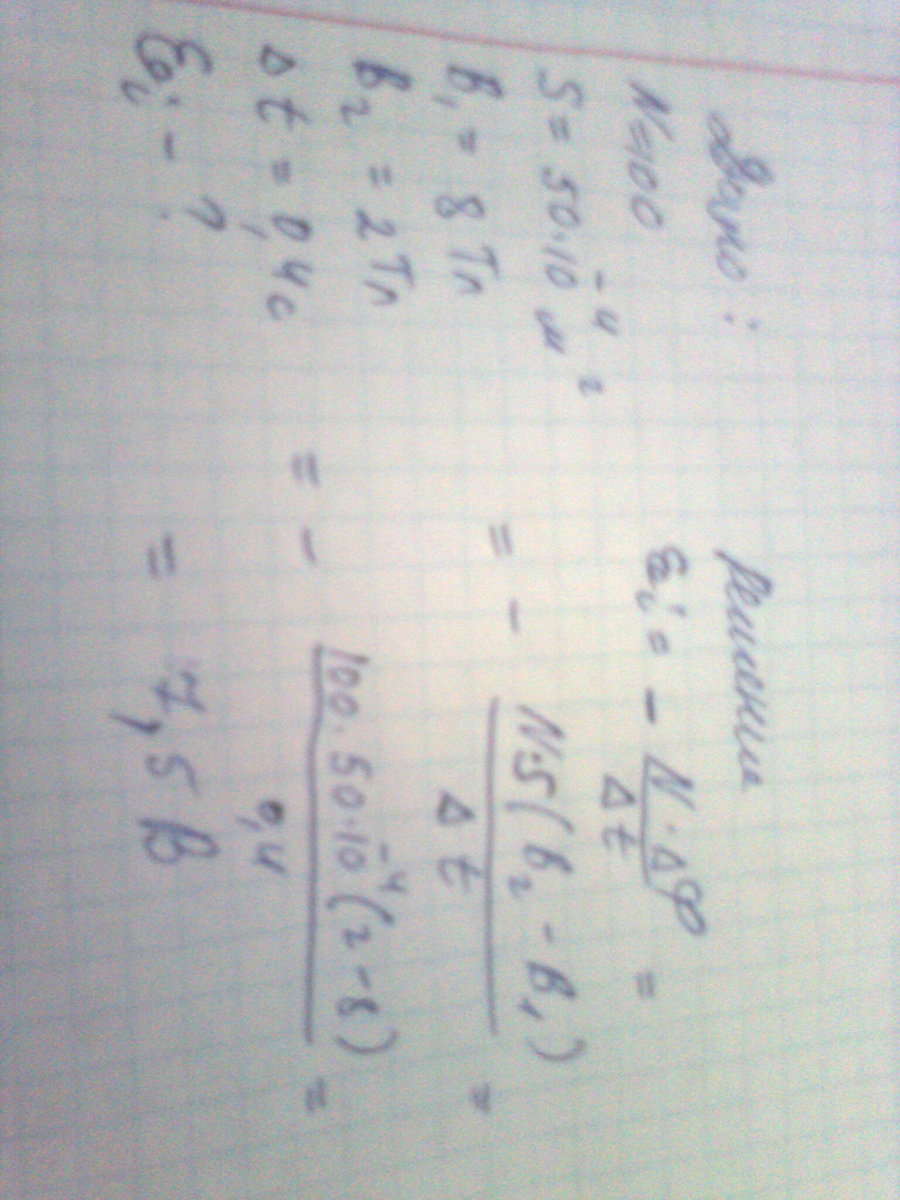 Дано:
N=100
S = 50·10⁻⁴ м²
B₁ = 8 Тл
B₂ = 2 Тл
Δt = 0,4 с
Ɛi - ?
Решения
Ɛi = - N·ΔΦ / Δt =
= - N·S(B₂ - B₁) / Δt =
= - 100·50·10⁻⁴(2-8) / 0,4 =
= 7,5 В